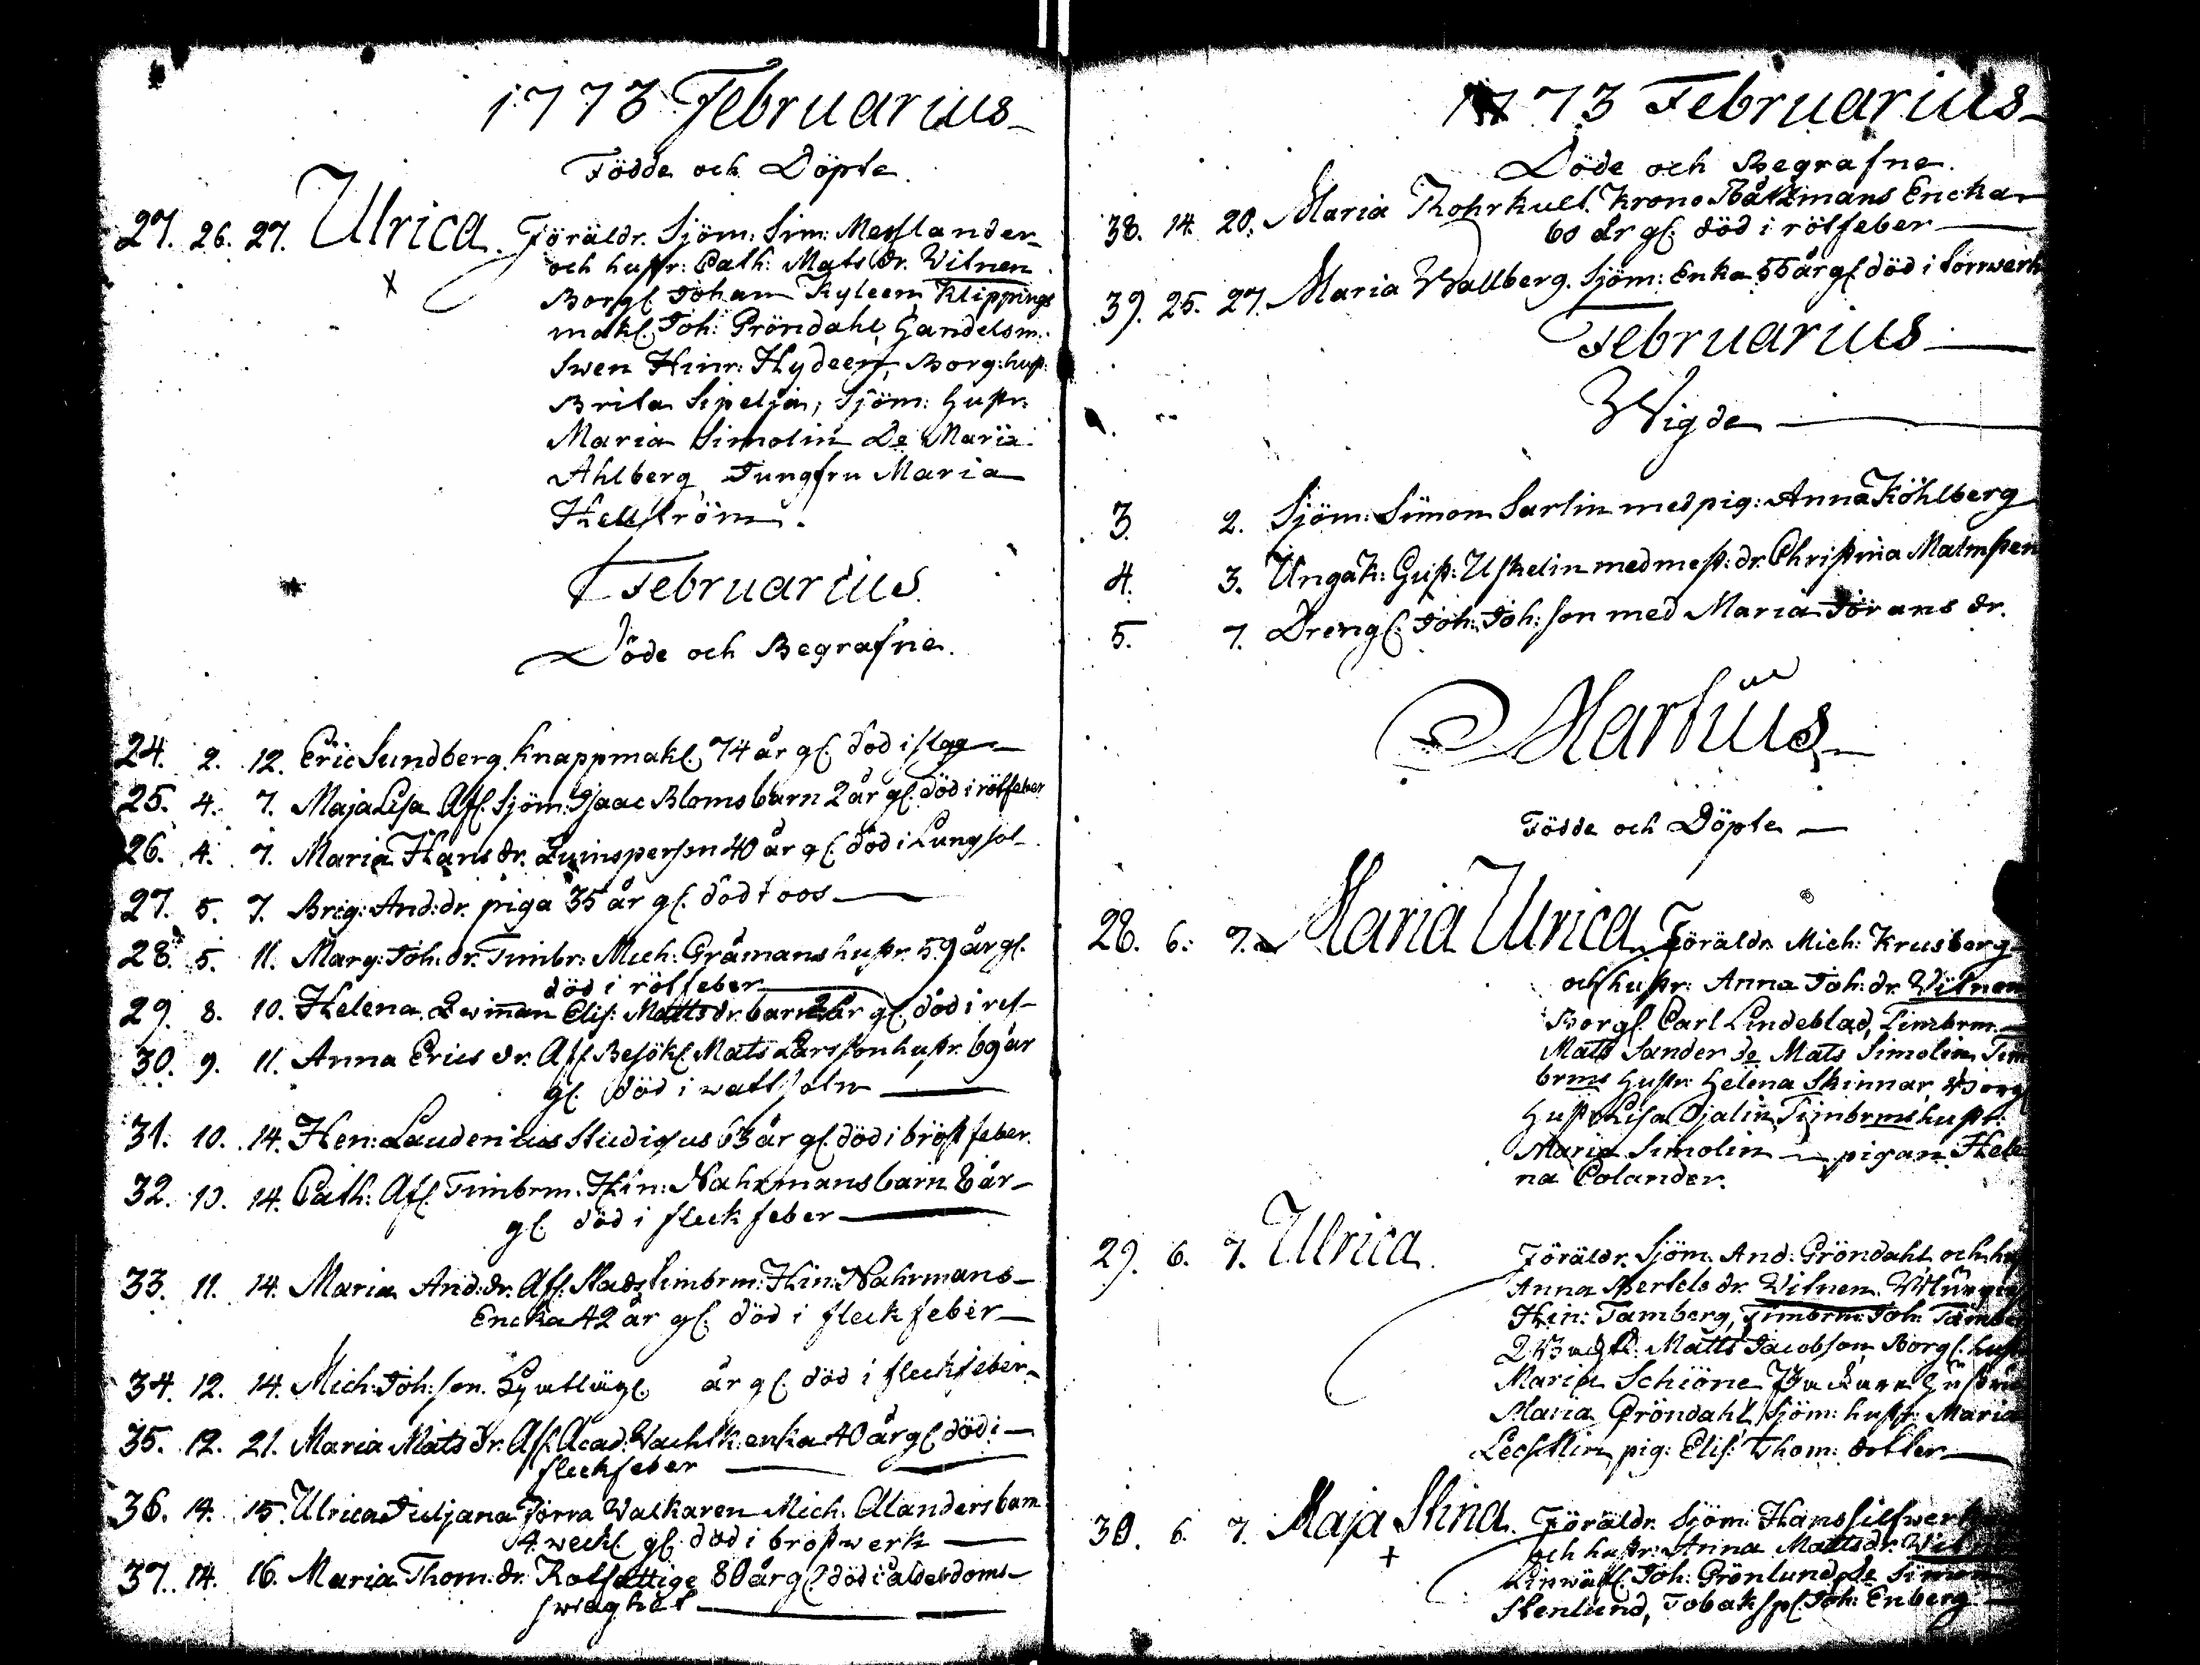 1773 Februarius
Födde och Döpte.
27. 26. 27. Ulrica. Föräldr. Sjöm: Sim: Messlander
och hustr: Cath: Mats dr. Witnen
x
Borgl. Johan Kyleen, Klippings
makl. Joh: Gröndahl, Handelsm:
Swen Hinr: Hydeen, Borg: hust:
Brita Sipelja, Sjöm: Hustr:
Maria Simolin De Maria
Ahlberg Jungfru Maria
Hellström.
Februarius
Döde och Begrafne.
24. 2. 12. Eric Sundberg Knappmakl. 74 år gl. död i slag
25. 4. 7. Maja Lisa Afl. Sjöm: Isaac Bloms barn 2 år gl. död i rötfeber
26. 4. 7. Maria Hans dr. 40 år gl. död i Lungsot
27. 5. 7. Brig: And: dr. piga 35 år gl. död
28. 5. 11. Marg: Joh: dr. Timbr: Mich: Gråmans hustr. 59 år gl.
död i rötfeber
29. 8. 10. Helena Elis: Matts dr. barn år gl. död i
30. 9. 11. Anna Erics dr. Afl. Besökl. Mats Larsson hustr. 69 år
gl. död i
31. 10. 14. Hen: Laudenius Studiosus 63 år gl. död i bröstfeber.
32. 10. 14. Cath: Afl. Timbrm. Hin: Nahrmans barn 8 år
gl. död i fleckfeber
33. 11. 14. Maria And: dr. Afl. Stads timbrm: Hin: Nahrmans
Encka 42 år gl. död i fleckfeber
34. 12. 14. Mich: Joh: son. år gl. död i fleckfeber
35. 12. 21. Maria Mats dr. Afl. Acad: Wachtk: enka 40 år gl. död i
fleckfeber
36. 14. 15. Ulrica Juljana Förra Walkaren Mich. Alanders barn
weckl. gl. död i bröstwerk
37. 14. 16. Maria Thom: dr. Rotfattige 80 år gl. död i ålderdoms
swaghet
1773 Februarius
Döde och Begrafne.
38. 14. 20. Maria Thohrkull. Krono Båtzmans Encka
60 år gl. död i rötfeber
39. 25. 27. Maria Wallberg. Sjöm: Enka 55 år gl. död i torrwerk
Februarius
Wigde
3. 2. Sjöm: Simon Sarlin med pig: Anna Köhlberg
4. 3. Ungak: Gust: Uskelin med mest: dr. Christina Malmsten
5. 7. Drengl. Joh: Joh: son med Maria Jörans dr.
Martius
Födde och Döpte
28. 6. 7. Maria Ulrica. Föräldr. Mich: Krusberg
och hustr: Anna Joh: dr. Witnen
Borgl. Carl Lindeblad, Timbrm.
Mats Sander de Mats Simolin, Tim
brms Hustr: Helena Skinnar, Borg
Hustr Lisa Timbrms hustr:
Maria Simolin pigan Hele
na Colander.
29. 6. 7. Ulrica. Föräldr. Sjöm. And: Gröndahl, och hu
Anna Bertels dr. Witnen.
Hin: Tamberg, Timbrm: Joh: Tambe
Matts Jacobson Borgl. hust
Maria Schiöne Hustru
Maria Gröndahl, Sjöm: hustr: Maria
pig: Elis: Thom: dotter
30. 6. 7. Maja Stina. Föräldr. Sjöm: Hans Silfwer
+
och hustr: Anna Matts dr. Wit
Linwäfl. Joh: Grönlund, de Simon
Stenlund, Tobaksp. Joh: Enberg